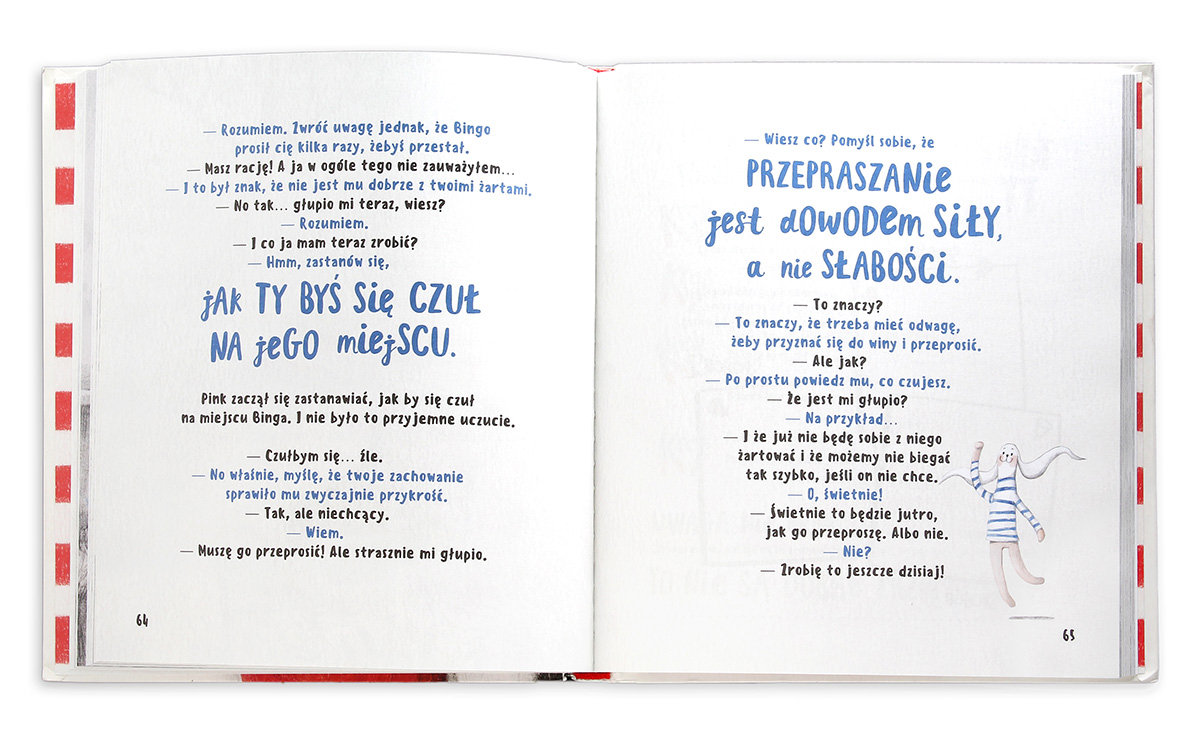 — Rozumiem. Zwróć uwagę jednak, że Bingo
prosił cię kilka razy, żebyś przestał.
— Masz rację! A ja w ogóle tego nie zauważyłem...
— I to był znak, że nie jest mu dobrze z twoimi żartami.
— No tak... głupio mi teraz, wiesz?
— Rozumiem.
— I co ja mam teraz zrobić?
— Hmm, zastanów się,
jAK TY BYŚ Się CZUŁ
NA jeGO miejSCU.
Pink zaczął się zastanawiać, jak by się czuł
na miejscu Binga. I nie było to przyjemne uczucie.
— Czułbym się... źle.
— No właśnie, myślę, że twoje zachowanie
sprawiło mu zwyczajnie przykrość.
— Tak, ale niechcący.
— Wiem.
— Muszę go przeprosić! Ale strasznie mi głupio.
64
— Wiesz co? Pomyśl sobie, że
PRZEPRASZANie
jest dOWODem SiŁY,
a nie SŁABOŚCi.
— To znaczy?
— To znaczy, że trzeba mieć odwagę,
żeby przyznać się do winy i przeprosić.
— Ale jak?
— Po prostu powiedz mu, co czujesz.
— Że jest mi głupio?
— Na przykład...
— I że już nie będę sobie z niego
żartować i że możemy nie biegać
tak szybko, jeśli on nie chce.
— O, świetnie!
— Świetnie to będzie jutro,
jak go przeproszę. Albo nie.
— Nie?
— Zrobię to jeszcze dzisiaj!
65